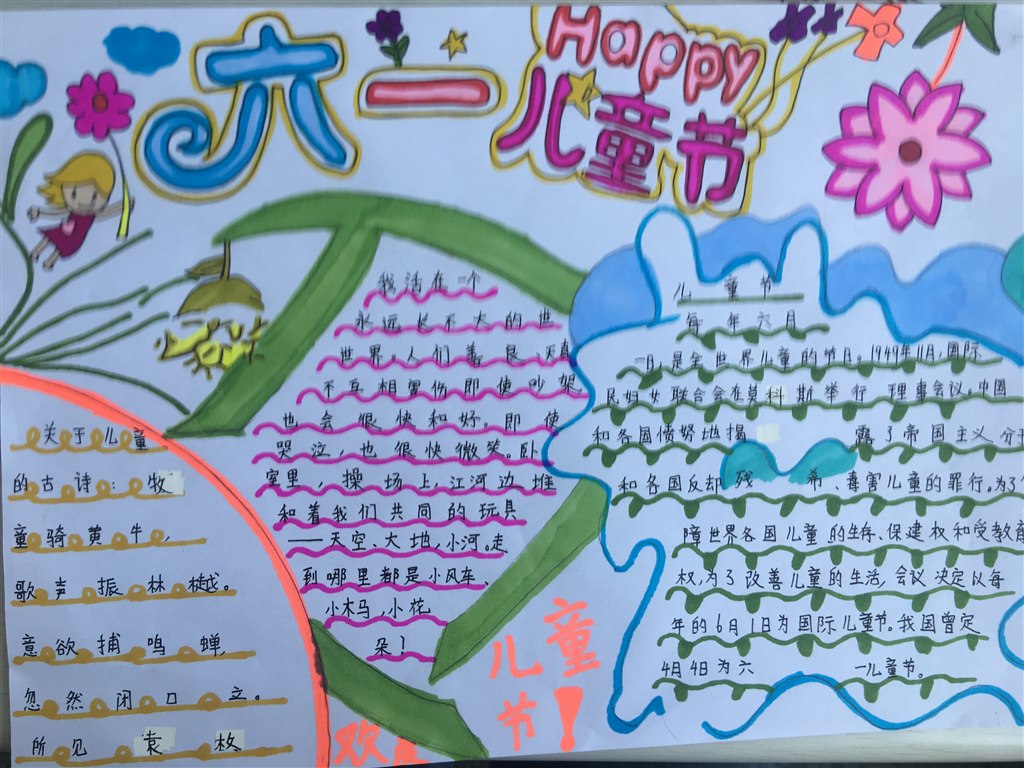 六一
Happy
儿童节
关于儿童
的古诗：牧
童骑黄牛，
歌声振林樾。
意欲捕鸣蝉，
忽然闭口立。
所见 袁枚
我活在一个
永远长不大的世
世界。人们善良、天真
不互相署伤即使吵架
也会很快和好。即使
哭泣，也很快微笑。卧
室里，操场上，江河边堆
和着我们共同的玩具
——天空、大地，小河。走
到哪里都是小风车、
小木马，小花
朵！
儿童节
每年六月
一日，是全世界儿童的节日。1949年11月，国际
民妇女联合会在莫科斯举行理事会议。中国
和各国愤努地揭露了帝国主义
和各国反却残希、毒害儿童的罪行。为了
障世界各国儿童的生存、保建权和受教育
权，为了改善儿童的生活，会议决定以每
年的6月1日为国际儿童节。我国曾定
4月4日为六一儿童节。
儿童
节！
欢